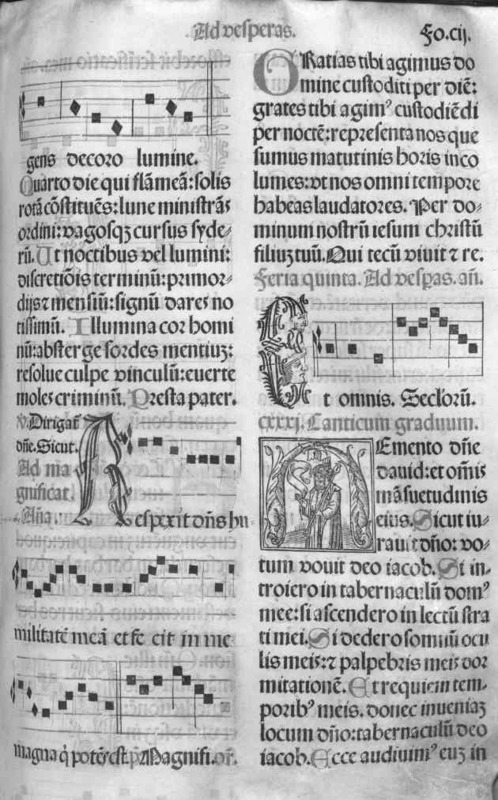 Ad vesperas.
Fo.cij.
gens decoro lumine.
Quarto die qui flãmeã: solis
rotã cõstituẽs: lune ministrãs
ordini: vagosqz cursus syde-
rũ. Ut noctibus vel lumini:
discretiõis terminũ: primor-
dijs ⁊ mensiũ: signũ dares no
tissimũ. Illumina cor homi
nũ: absterge sordes mentiuz:
resolue culpe vinculũ: euerte
moles criminũ. Presta pater.
v. Dirigat̃
dñe. Sicut.
Ad ma
gnificat.
Aña.
Respexit dñs hu
militatẽ meã et fe cit in me
magna q̇ potẽs est. Magnifi.
GRatias tibi agimus do
mine custoditi per diẽ:
grates tibi agimꝰ custodiẽdi
per noctẽ: representa nos que
sumus matutinis horis inco
lumes: vt nos omni tempore
habeas laudatores. Per do-
minum nostrũ iesum christũ
filiuz tuũ. Qui tecũ viuit ⁊ re.
Feria quinta. Ad vesp̃as. añ.
Et omnis. Seclorũ.
cxxxj. Canticum graduum.
MEmento dñe
dauid: et om̃is
mãsuetudinis
eius. Sicut iu-
rauit dño: vo-
tum vouit deo iacob. Si in-
troiero in tabernaculũ domꝰ
mee: si ascendero in lectũ stra
ti mei. Si dedero somnũ ocu
lis meis: ⁊ palpebris meis dor
mitationẽ. Et requiem tem-
poribꝰ meis. donec inueniaz
locum dño: tabernaculũ deo
iacob. Ecce audiuimꝰ euz in